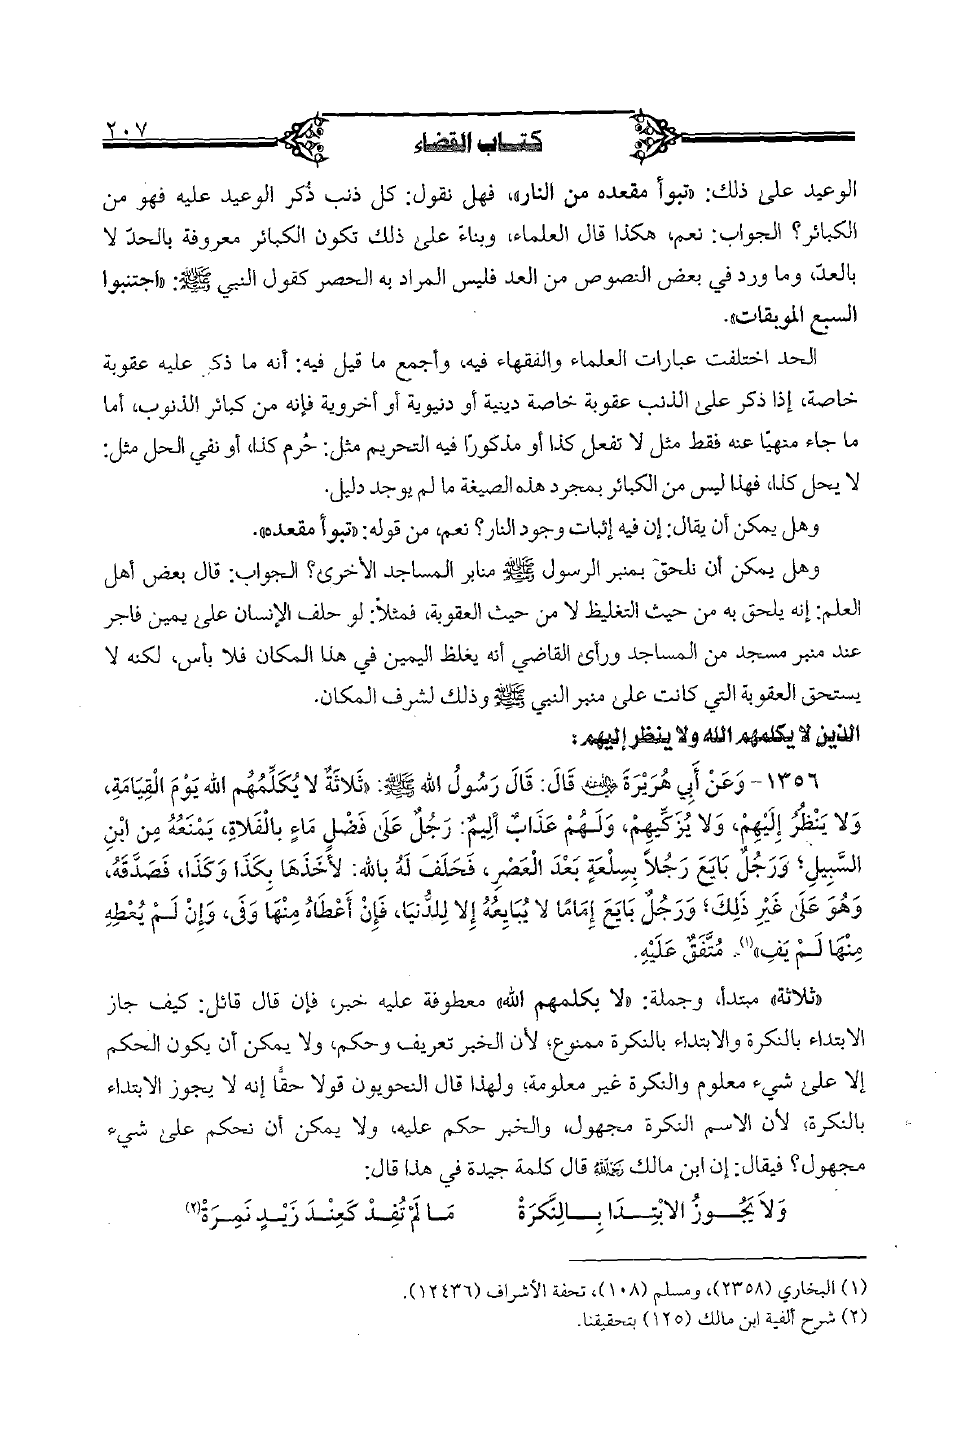 ٢٠٧
كتاب القضاء
الوعيد على ذلك: «تبوأ مقعده من النار»، فهل نقول: كل ذنب ذُكر الوعيد عليه فهو من
الكبائر؟ الجواب: نعم، هكذا قال العلماء، وبناءً على ذلك تكون الكبائر معروفة بالحدّ لا
بالعدّ، وما ورد في بعض النصوص من العد فليس المراد به الحصر كقول النبي ﷺ: «اجتنبوا
السبع الموبقات».
الحد اختلفت عبارات العلماء والفقهاء فيه، وأجمع ما قيل فيه: أنه ما ذكر عليه عقوبة
خاصة، إذا ذكر على الذنب عقوبة خاصة دينية أو دنيوية أو أخروية فإنه من كبائر الذنوب، أما
ما جاء منهيًا عنه فقط مثل لا تفعل كذا أو مذكورًا فيه التحريم مثل: حُرم كذا، أو نفي الحل مثل:
لا يحل كذا، فهذا ليس من الكبائر بمجرد هذه الصيغة ما لم يوجد دليل.
وهل يمكن أن يقال: إن فيه إثبات وجود النار؟ نعم، من قوله: «تبوأ مقعده».
وهل يمكن أن نلحق بمنبر الرسول ﷺ منابر المساجد الأخرى؟ الجواب: قال بعض أهل
العلم: إنه يلحق به من حيث التغليظ لا من حيث العقوبة، فمثلاً: لو حلف الإنسان على يمين فاجر
عند منبر مسجد من المساجد ورأى القاضي أنه يغلظ اليمين في هذا المكان فلا بأس، لكنه لا
يستحق العقوبة التي كانت على منبر النبي ﷺ وذلك لشرف المكان.
الذين لا يكلمهم الله ولا ينظر إليهم:
١٣٥٦- وَعَنْ أَبِي هُرَيْرَةَ رضي الله عنه قَالَ: قَالَ رَسُولُ الله ﷺ: «ثَلاثَةٌ لا يُكَلِّمُهُم الله يَوْمَ الْقِيَامَةِ،
وَلا يَنْظُرُ إِلَيْهِمْ، وَلا يُزَكِّيهِمْ، وَلَهُمْ عَذَابٌ أَلِيمٌ: رَجُلٌ عَلَى فَضْلِ مَاءٍ بِالْفَلاةِ، يَمْنَعُهُ مِن ابْنِ
السَّبِيلِ؛ وَرَجُلٌ بَايَعَ رَجُلاً بِسِلْعَةٍ بَعْدَ الْعَصْرِ، فَحَلَفَ لَهُ بِالله: لأَخَذَهَا بِكَذَا وَكَذَا، فَصَدَّقَهُ،
وَهُوَ عَلَى غَيْرِ ذَلِكَ؛ وَرَجُلٌ بَايَعَ إِمَامًا لا يُبَايِعُهُ إِلا لِلدُّنْيَا، فَإِنْ أَعْطَاهُ مِنْهَا وَفَى، وَإِنْ لَمْ يُعْطِهِ
مِنْهَا لَمْ يَفِ»(١). مُتَّفَقٌ عَلَيْهِ.
«ثلاثة» مبتدأ، وجملة: «لا يكلمهم الله» معطوفة عليه خبر، فإن قال قائل: كيف جاز
الابتداء بالنكرة والابتداء بالنكرة ممنوع؛ لأن الخبر تعريف وحكم، ولا يمكن أن يكون الحكم
إلا على شيء معلوم والنكرة غير معلومة؛ ولهذا قال النحويون قولا حقًّا إنه لا يجوز الابتداء
بالنكرة؛ لأن الاسم النكرة مجهول، والخبر حكم عليه، ولا يمكن أن نحكم على شيء
مجهول؟ فيقال: إن ابن مالك رحمه الله قال كلمة جيدة في هذا قال:
وَلاَ يَجُوزُ الابْتِدَا بِالنَّكَرَةْ مَا لَمْ تُفِدْ كَعِنْدَ زَيْدٍ نَمِرَةْ(٢)
(١) البخاري (٢٣٥٨)، ومسلم (١٠٨)، تحفة الأشراف (١٢٤٣٦).
(٢) شرح ألفية ابن مالك (١٢٥) بتحقيقنا.